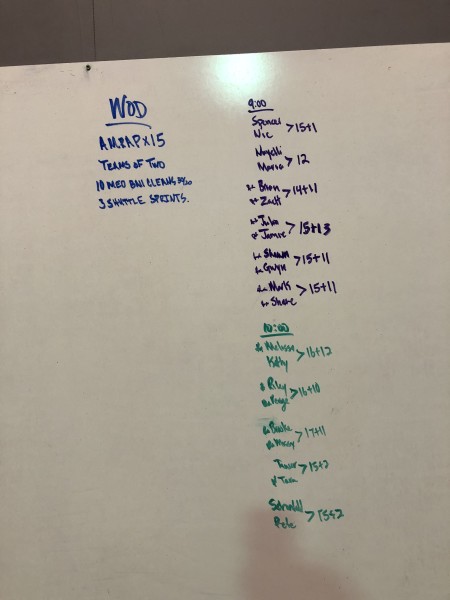 WOD
AMRAP x 15
TEAMS OF TWO
10 MED BALL CLEANS 30/20
3 SHUTTLE SPRINTS.
9:00
Spencer
Nic > 15+1
Maria > 12
Brian
Zach > 14+11
Julie
Jamie > 15+13
Shawn
Gwyn > 15+11
Mark
Shane > 15+11
10:00
Melissa
Kathy > 16+12
Riley
Paige > 16+10
Brooke
> 17+11
Trevor
Tara > 15+2
Pete > 15+2